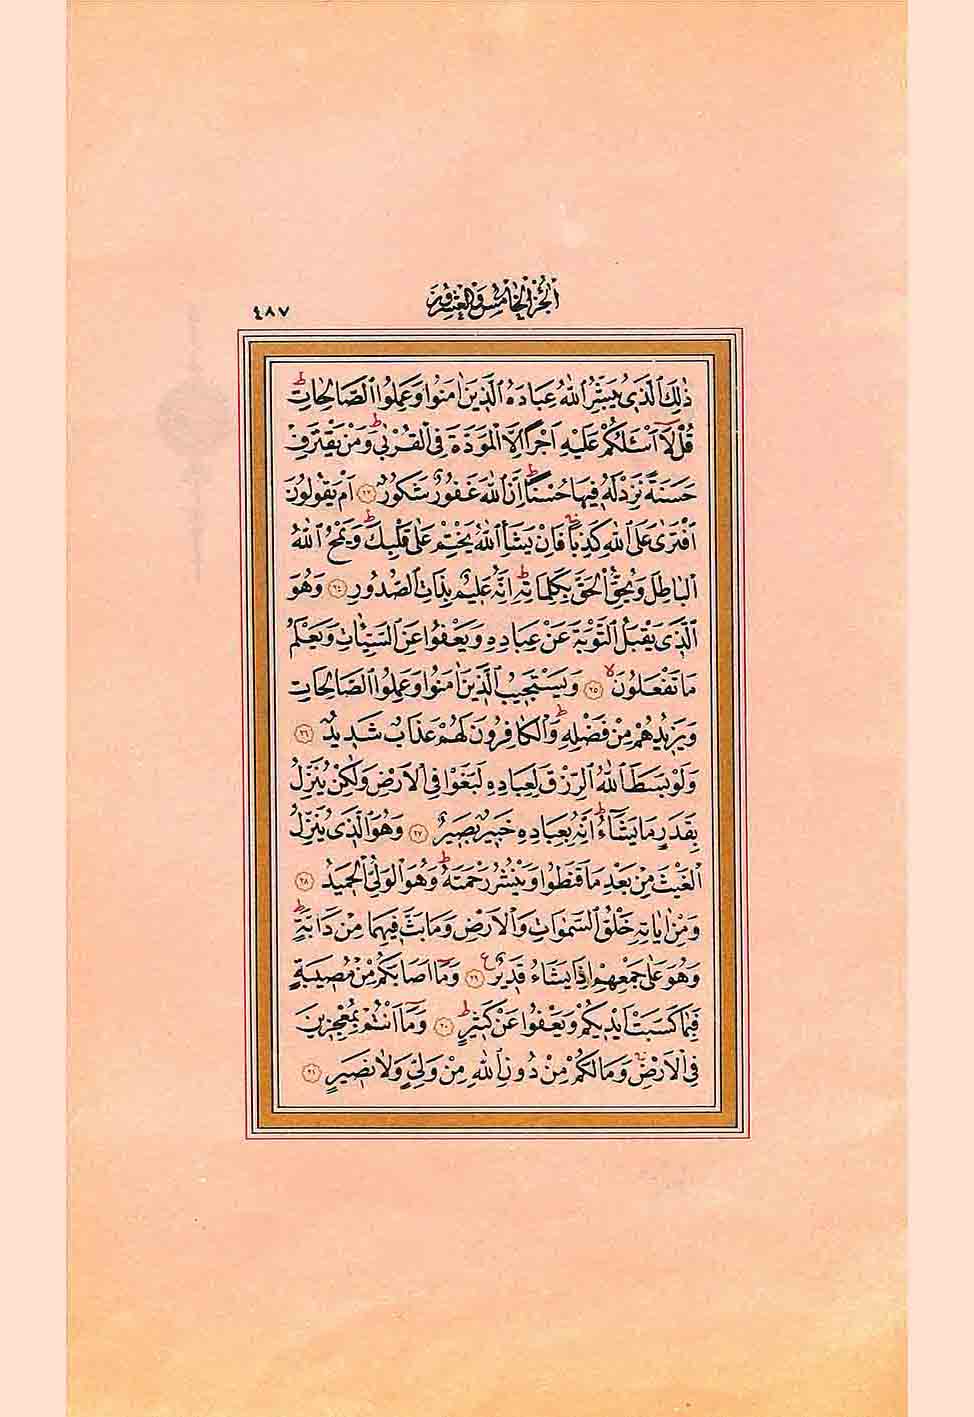 الجزء الخامس والعشرون
٤٨٧
ذٰلِكَ الَّذ۪ي يُبَشِّرُ اللّٰهُ عِبَادَهُ الَّذ۪ينَ اٰمَنُوا وَعَمِلُوا الصَّالِحَاتِۜ
قُلْ لَٓا اَسْـَٔلُكُمْ عَلَيْهِ اَجْرًا اِلَّا الْمَوَدَّةَ فِي الْقُرْبٰىۜ وَمَنْ يَقْتَرِفْ
حَسَنَةً نَزِدْ لَهُ ف۪يهَا حُسْنًاۜ اِنَّ اللّٰهَ غَفُورٌ شَكُورٌ ﴿٢٣﴾ اَمْ يَقُولُونَ
افْتَرٰى عَلَى اللّٰهِ كَذِبًاۚ فَاِنْ يَشَأِ اللّٰهُ يَخْتِمْ عَلٰى قَلْبِكَۜ وَيَمْحُ اللّٰهُ
الْبَاطِلَ وَيُحِقُّ الْحَقَّ بِكَلِمَاتِه۪ۜ اِنَّهُ عَل۪يمٌ بِذَاتِ الصُّدُورِ ﴿٢٤﴾ وَهُوَ
الَّذ۪ي يَقْبَلُ التَّوْبَةَ عَنْ عِبَادِه۪ وَيَعْفُوا عَنِ السَّيِّـَٔاتِ وَيَعْلَمُ
مَا تَفْعَلُونَۙ ﴿٢٥﴾ وَيَسْتَج۪يبُ الَّذ۪ينَ اٰمَنُوا وَعَمِلُوا الصَّالِحَاتِ
وَيَز۪يدُهُمْ مِنْ فَضْلِه۪ۜ وَالْكَافِرُونَ لَهُمْ عَذَابٌ شَد۪يدٌ ﴿٢٦﴾
وَلَوْ بَسَطَ اللّٰهُ الرِّزْقَ لِعِبَادِه۪ لَبَغَوْا فِي الْاَرْضِ وَلٰكِنْ يُنَزِّلُ
بِقَدَرٍ مَا يَشَٓاءُۜ اِنَّهُ بِعِبَادِه۪ خَب۪يرٌ بَص۪يرٌ ﴿٢٧﴾ وَهُوَ الَّذ۪ي يُنَزِّلُ
الْغَيْثَ مِنْ بَعْدِ مَا قَنَطُوا وَيَنْشُرُ رَحْمَتَهُۜ وَهُوَ الْوَلِيُّ الْحَم۪يدُ ﴿٢٨﴾
وَمِنْ اٰيَاتِه۪ خَلْقُ السَّمٰوَاتِ وَالْاَرْضِ وَمَا بَثَّ ف۪يهِمَا مِنْ دَٓابَّةٍۜ
وَهُوَ عَلٰى جَمْعِهِمْ اِذَا يَشَٓاءُ قَد۪يرٌ۟ ﴿٢٩﴾ وَمَٓا اَصَابَكُمْ مِنْ مُص۪يبَةٍ
فَبِمَا كَسَبَتْ اَيْد۪يكُمْ وَيَعْفُوا عَنْ كَث۪يرٍۜ ﴿٣٠﴾ وَمَٓا اَنْتُمْ بِمُعْجِز۪ينَ
فِي الْاَرْضِۚ وَمَا لَكُمْ مِنْ دُونِ اللّٰهِ مِنْ وَلِيٍّ وَلَا نَص۪يرٍ ﴿٣١﴾